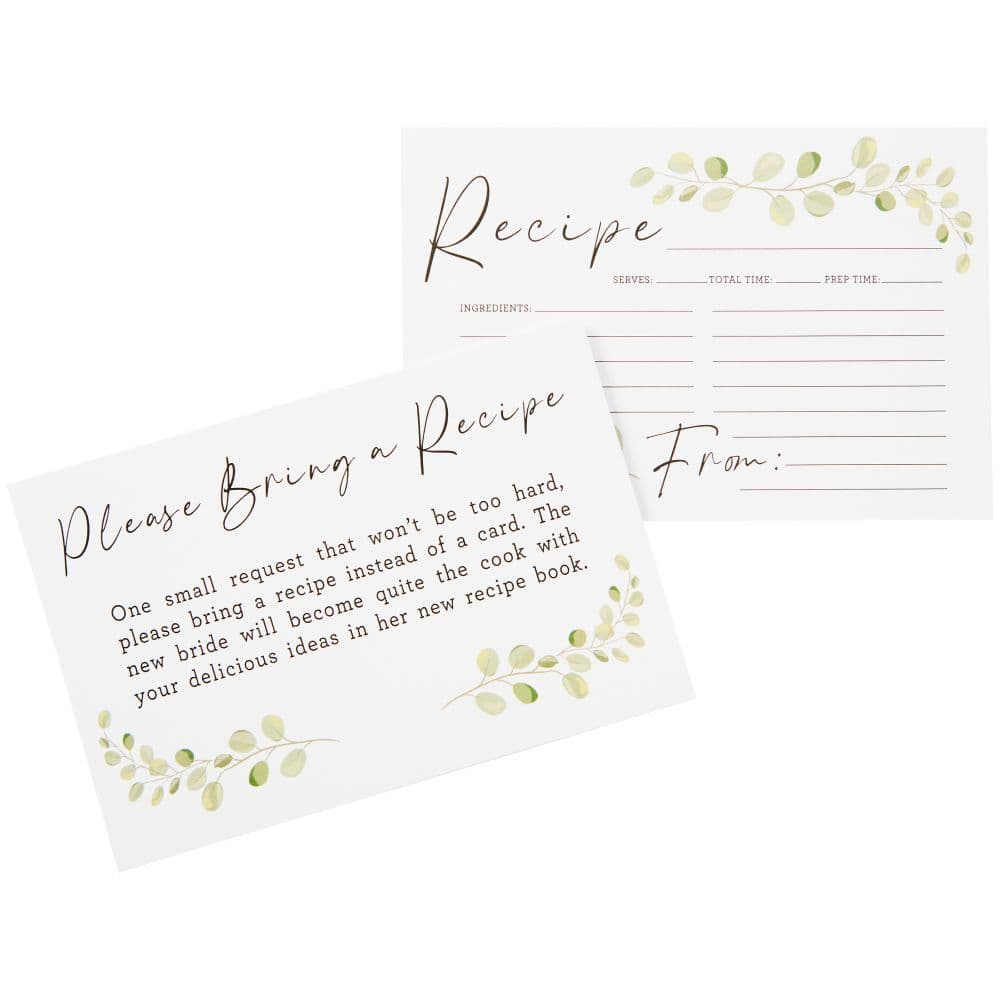 Recipe
SERVES: TOTAL TIME: PREP TIME:
INGREDIENTS:
From:
Please Bring a Recipe
One small request that won't be too hard,
please bring a recipe instead of a card. The
new bride will become quite the cook with
your delicious ideas in her new recipe book.